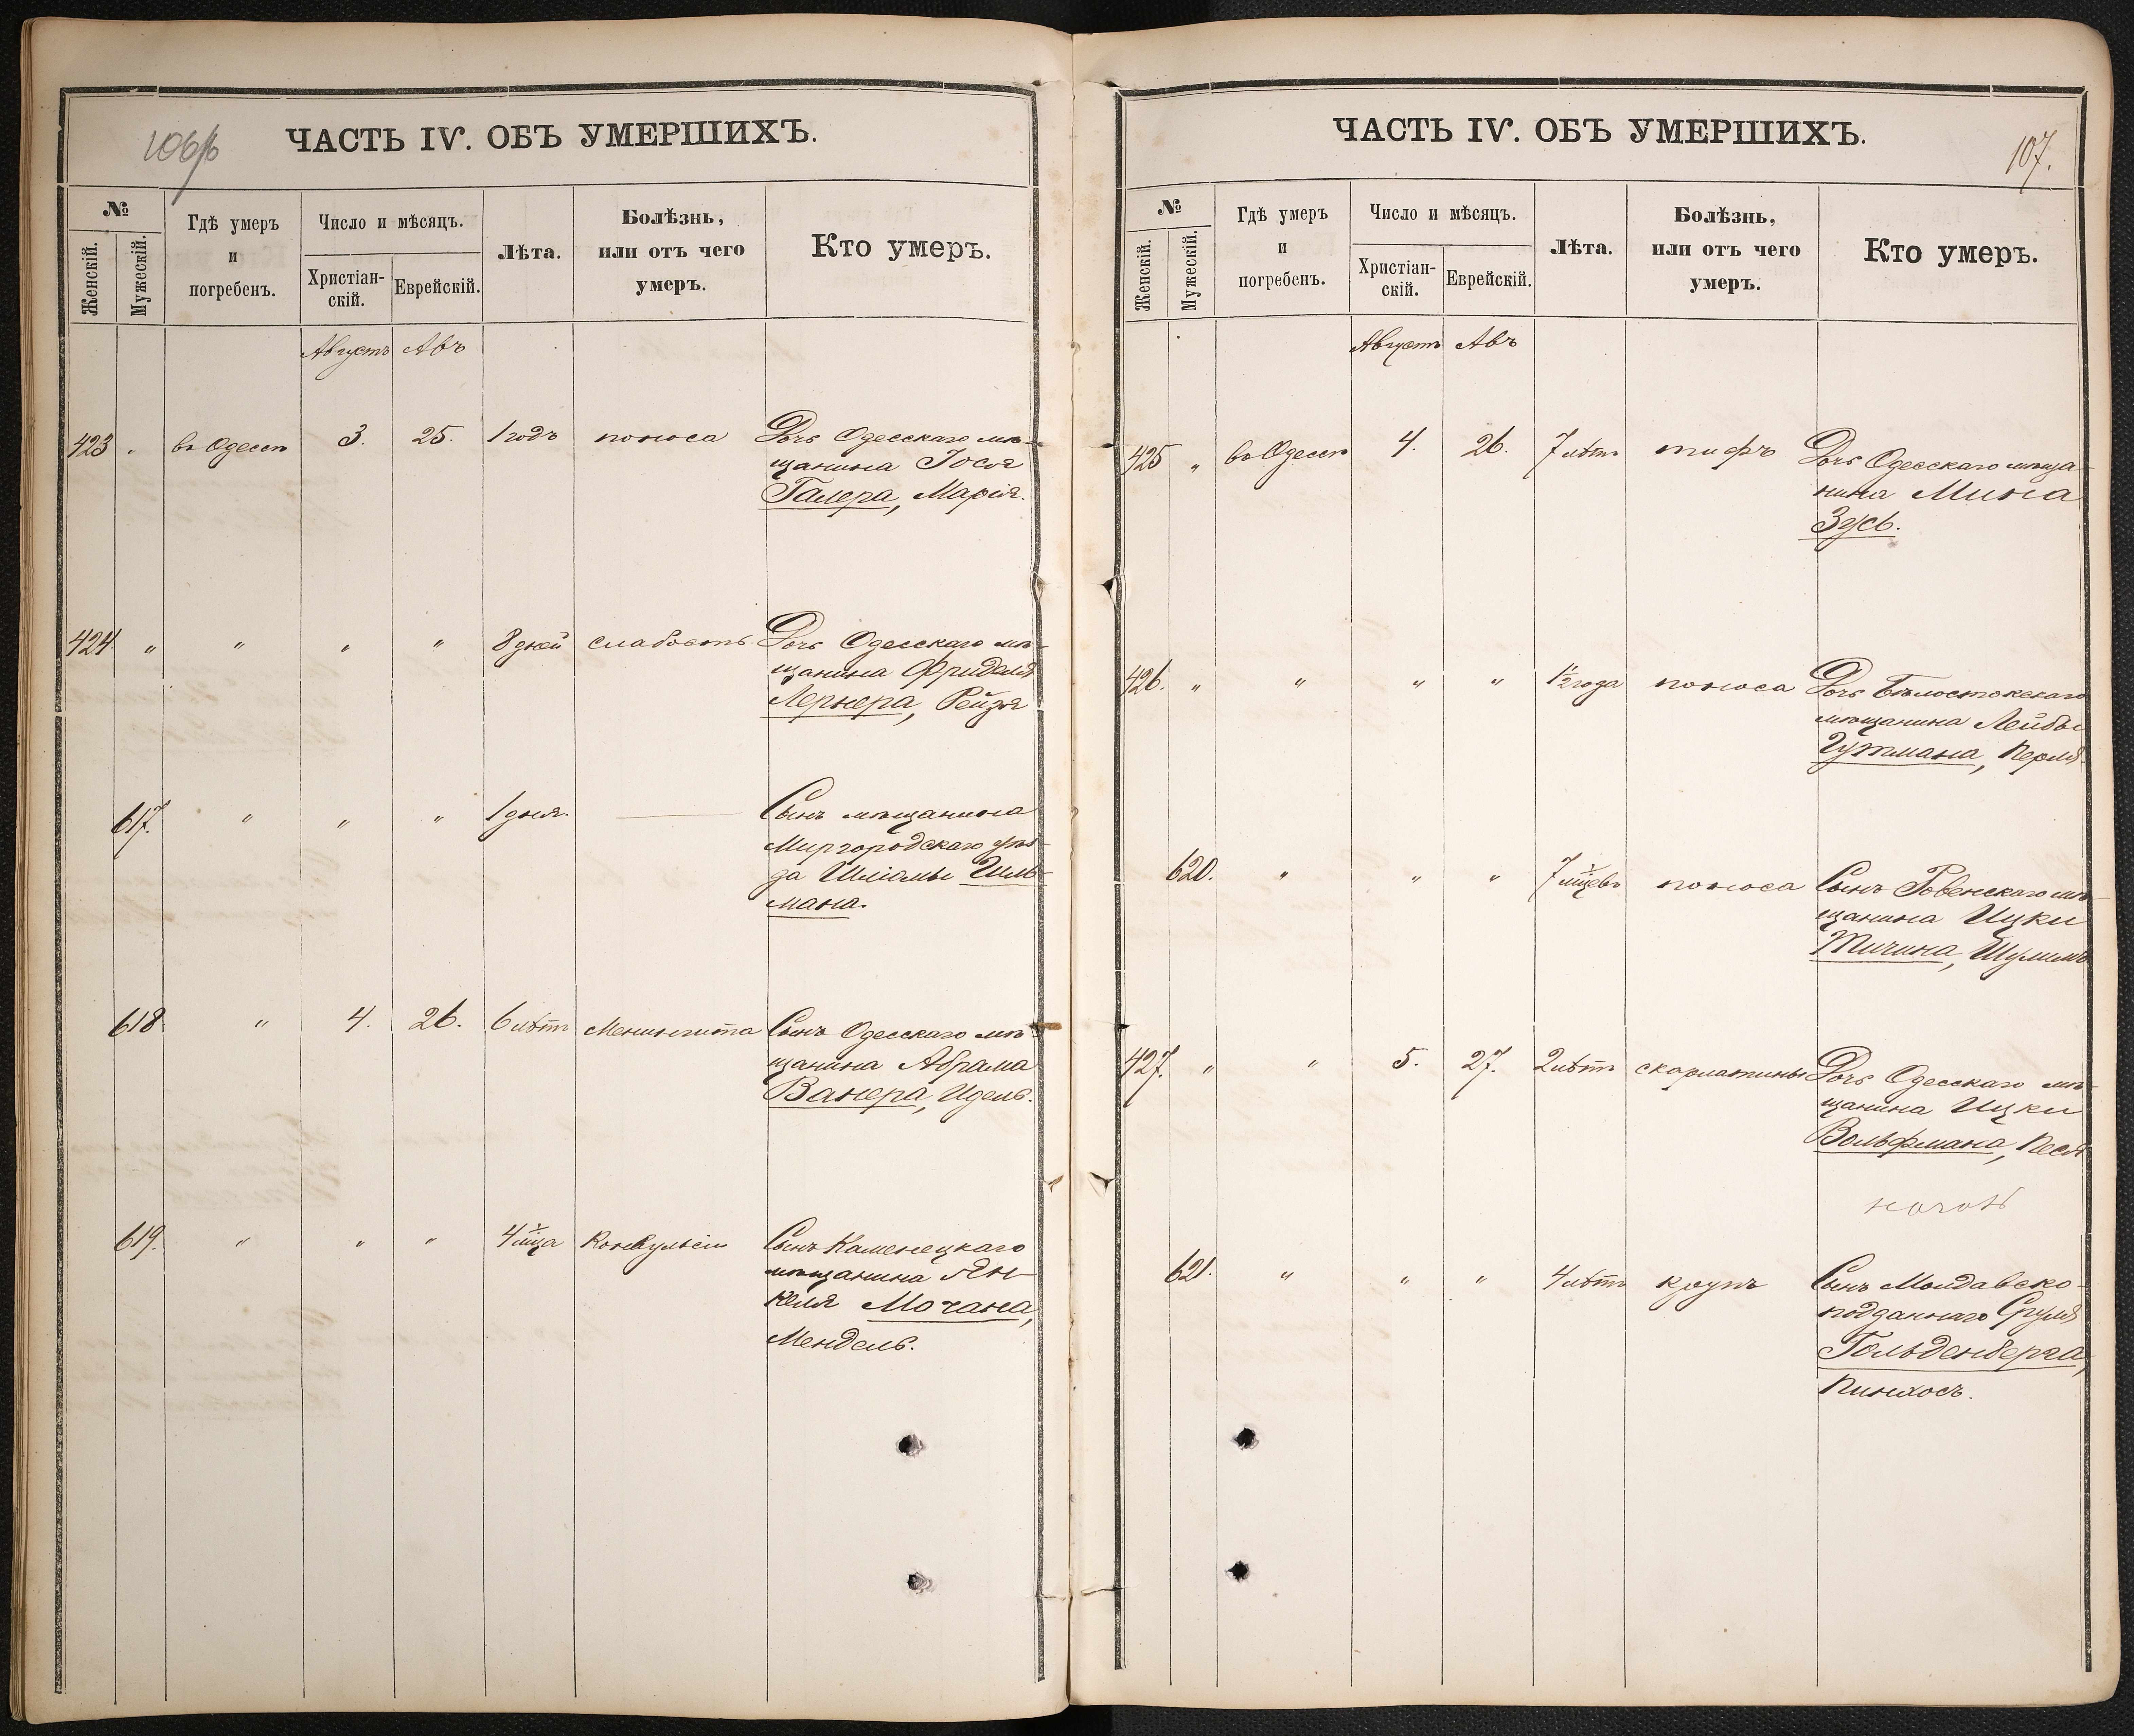 106 об
ЧАСТЬ IV. ОБЪ УМЕРШИХЪ.
№
Женскій.
Мужескій.
Гдѣ умеръ
и
погребенъ.
Число и мѣсяцъ.
Христіан-
скій.
Еврейскій.
Лѣта.
Болѣзнь,
или отъ чего
умеръ.
Кто умеръ.
Августъ Авъ
423 " въ Одессѣ 3. 25. 1 годъ поноса Дочь Одесскаго мѣ-
щанина Іося
Галера, Марія.
424 " " " " 8 дней слабость Дочь Одесскаго мѣ-
щанина Фриделя
Лернера, Рейзя
617. " " " 1 дня. — Сынъ мѣщанина
Миргородскаго уѣз-
да Шліомы Шль-
мана.
618 " 4. 26. 6 лѣтъ Менингита Сынъ Одесскаго мѣ-
щанина Абрама
Ванера, Идель.
619. " " " 4 мѣца Конвульсіи Сынъ Каменецкаго
мѣщанина Ян-
келя Мочана,
Мендель.
ЧАСТЬ IV. ОБЪ УМЕРШИХЪ.
107.
№
Женскій.
Мужескій.
Гдѣ умеръ
и
погребенъ.
Число и мѣсяцъ.
Христіан-
скій.
Еврейскій.
Лѣта.
Болѣзнь,
или отъ чего
умеръ.
Кто умеръ.
Августъ Авъ
425 " въ Одессѣ 4. 26. 7 лѣтъ тифъ Дочь Одесскаго мѣща-
нина Мина
Зусь.
426. " " " " 1½ года поноса Дочь Бѣлостокскаго
мѣщанина Лейбы
Гутмана, Перля.
620. " " " 7 мѣцевъ поноса Сынъ Ровенскаго мѣ-
щанина Ицки
Тичина, Шулимъ
427. " " 5. 27. 2 лѣтъ скарлатины Дочь Одесскаго мѣ-
щанина Ицки
Вольфмана, Песя
621. " " " 4 лѣтъ крупъ Сынъ Молдавско-
подданнаго Сруля
Гольденберга,
Пинхосъ.